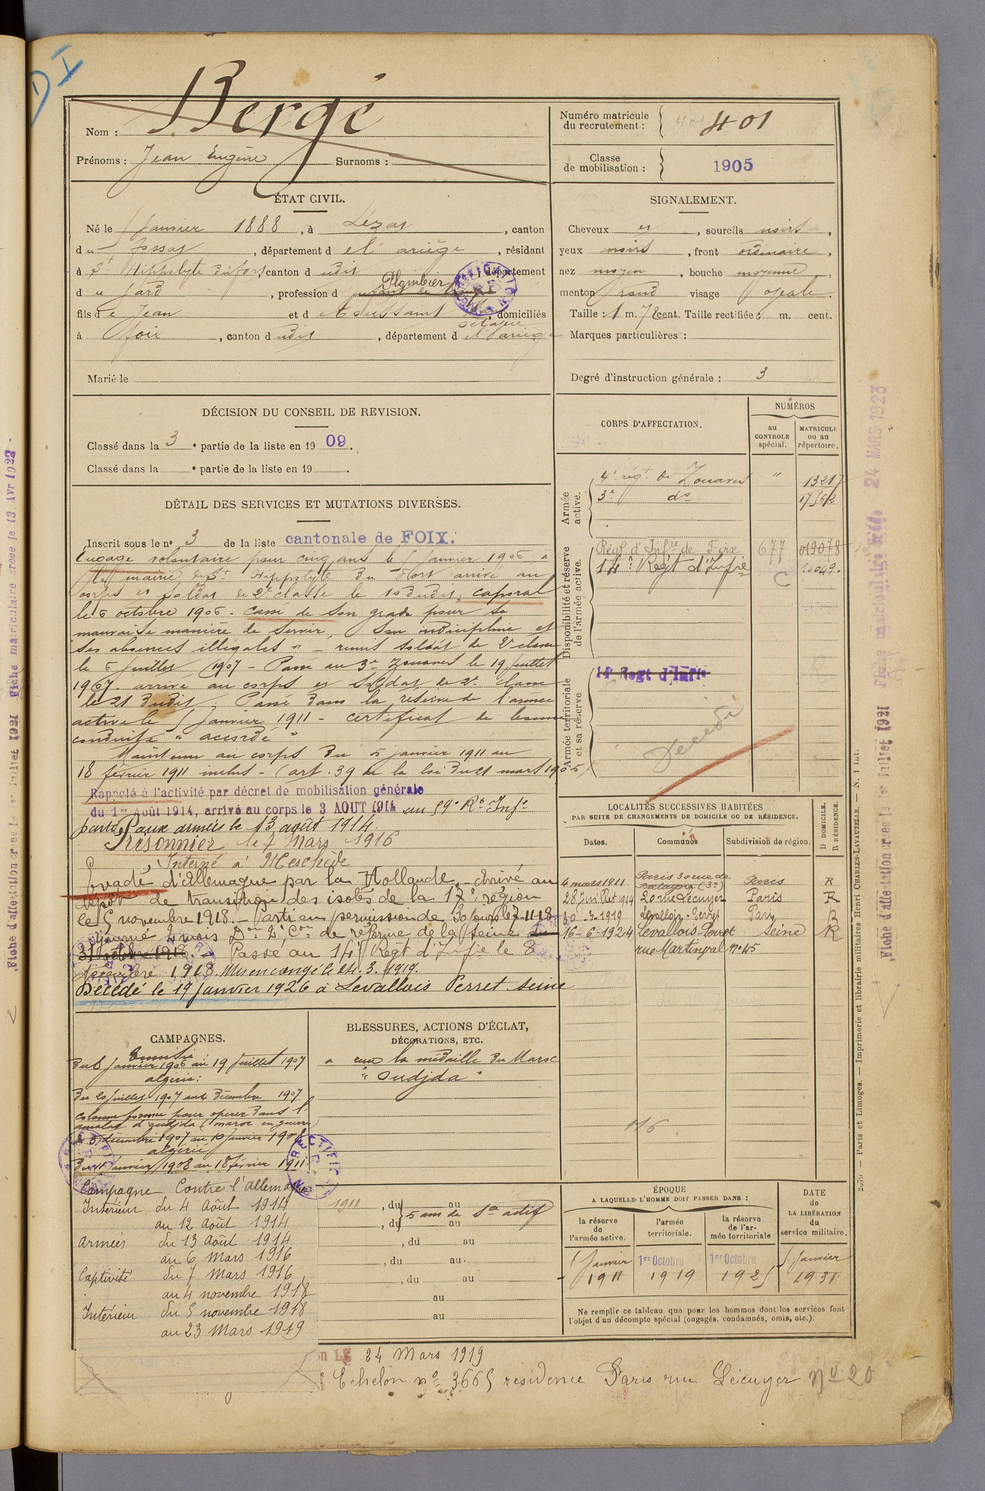 DI
Nom : Bergé
Prénoms : Jean Eugène Surnoms :
Numéro matricule du recrutement : 401
Classe de mobilisation : 1905
ÉTAT CIVIL.
Né le janvier 1888, à Lezat, canton
du Fossat, département d e l'ariège, résidant
à St Hippolyte du fort canton d udit, département
du Gard, profession d Plombier
fils de Jean et d e Toussaint, domiciliés
à foix, canton d udit, département d e l'ariège
Marié le
SIGNALEMENT.
Cheveux et, sourcils noirs,
yeux noirs, front ordinaire,
nez moyen, bouche moyenne,
menton rond visage ovale.
Taille : 1 m. cent. Taille rectifiée : m. cent.
Marques particulières :
Degré d'instruction générale : 3
DÉCISION DU CONSEIL DE REVISION.
Classé dans la 3e partie de la liste en 1909.
Classé dans la e partie de la liste en 19 .
DÉTAIL DES SERVICES ET MUTATIONS DIVERSES.
Inscrit sous le no 3 de la liste cantonale de FOIX.
Engagé volontaire pour cinq ans le janvier 1906 à
la mairie de St Hippolyte du Fort arrivé au
corps et soldat de 2e classe le 10 dudit, caporal
le 6 octobre 1906 - cassé de son grade pour sa
mauvaise manière de servir, son indiscipline et
ses absences illégales - remis soldat de 2e classe
le juillet 1907 - Passé au 3e zouaves le 19 juillet
1907 arrivé au corps et soldat de 2e classe
le 21 dudit, Passé dans la réserve de l'armée
active le janvier 1911 - certificat de bonne
conduite "accordé"
Maintenu au corps du 5 janvier 1911 au
18 février 1911 inclus - (art. 39 de la loi du 21 mars 1905)
Rappelé à l'activité par décret de mobilisation générale
du 1er Août 1914, arrivé au corps le 3 AOUT 1914 au 59e Rt Infie
parti aux armées le 13 août 1914.
Prisonnier le 7 Mars 1916
Interné à Meschede
Évadé d'Allemagne par la Hollande - Arrivé au
dépôt de transition des isolés de la 17e région
le 5 novembre 1918 - Parti en permission de 30 jours le 7-11-18
Ajourné 2 mois Don Don Con de réforme de la Seine
31 octobre 1918. - Passé au 14e Régt d'Infie le 8
décembre 1918 Mis en congé le 24.3.1919.
Décédé le 19 janvier 1926 à Levallois Perret Seine
CORPS D'AFFECTATION.
NUMÉROS
au CONTROLE spécial.
MATRICULE ou au répertoire.
Armée active.
4e régt de Zouaves " 13217
3e do
Disponibilité et réserve de l'armée active.
Régt d'Infie de Foix 677 019078
14e Régt d'Infie
Armée territoriale et sa réserve
14e Regt d'Infie
Décédé
LOCALITÉS SUCCESSIVES HABITÉES
PAR SUITE DE CHANGEMENTS DE DOMICILE OU DE RÉSIDENCE.
Dates. Communes Subdivision de région. D DOMICILE. R RÉSIDENCE.
4 mars 1911 Paris 30 rue de Bretagne (3e) Paris R
28 juin 1914 20 rue Lécuyer Paris R
30-3-1919 Levallois-Perret Paris R
16-6-1924 Levallois Perret Seine R
rue Martinval No 45
CAMPAGNES.
Tunisie
Du janvier 1906 au 19 juillet 1907
algérie:
Du 20 juillet 1907 au décembre 1907
colonne formée pour opérer dans l'
amalat d'oudjda (maroc en guerre)
décembre 1907 au 10 janvier 1908
algérie
Du 11 janvier 1908 au 18 février 1911
Campagne Contre l'allemagne
Intérieur du 4 Août 1914
au 12 Août 1914
Armées du 13 Août 1914
au 6 Mars 1916
Captivité du 7 Mars 1916
au 4 novembre 1918
Intérieur du 5 novembre 1918
au 23 Mars 1919
BLESSURES, ACTIONS D'ÉCLAT,
DÉCORATIONS, ETC.
a eu la médaille du Maroc
" oudjda "
1911, du au
5 ans de sce actif
, du au
, du au
, du au
, du au
au
au
ÉPOQUE
A LAQUELLE L'HOMME DOIT PASSER DANS :
la réserve de l'armée active.
l'armée territoriale.
la réserve de l'armée territoriale
DATE de LA LIBÉRATION du service militaire.
janvier 1911
1er Octobre 1919
1er Octobre 1925
janvier 1931
Ne remplir ce tableau que pour les hommes dont les services font
l'objet d'un décompte spécial (engagés, condamnés, omis, etc.).
24 Mars 1919
Echelon no 3665 résidence Paris rue Lécuyer No 20
2070 — Paris et Limoges. — Imprimerie et librairie militaires Henri CHARLES-LAVAUZELLE.
Fiche matriculaire créée le 13 Avr 1922
Fiche d'affectation créée le 1er Juillet 1921
Fiche matriculaire 24 MARS 1923
Fiche d'affectation créée le 1er Juillet 1921